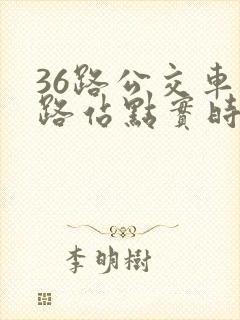 36路公交車
路佔點實時
李明樹